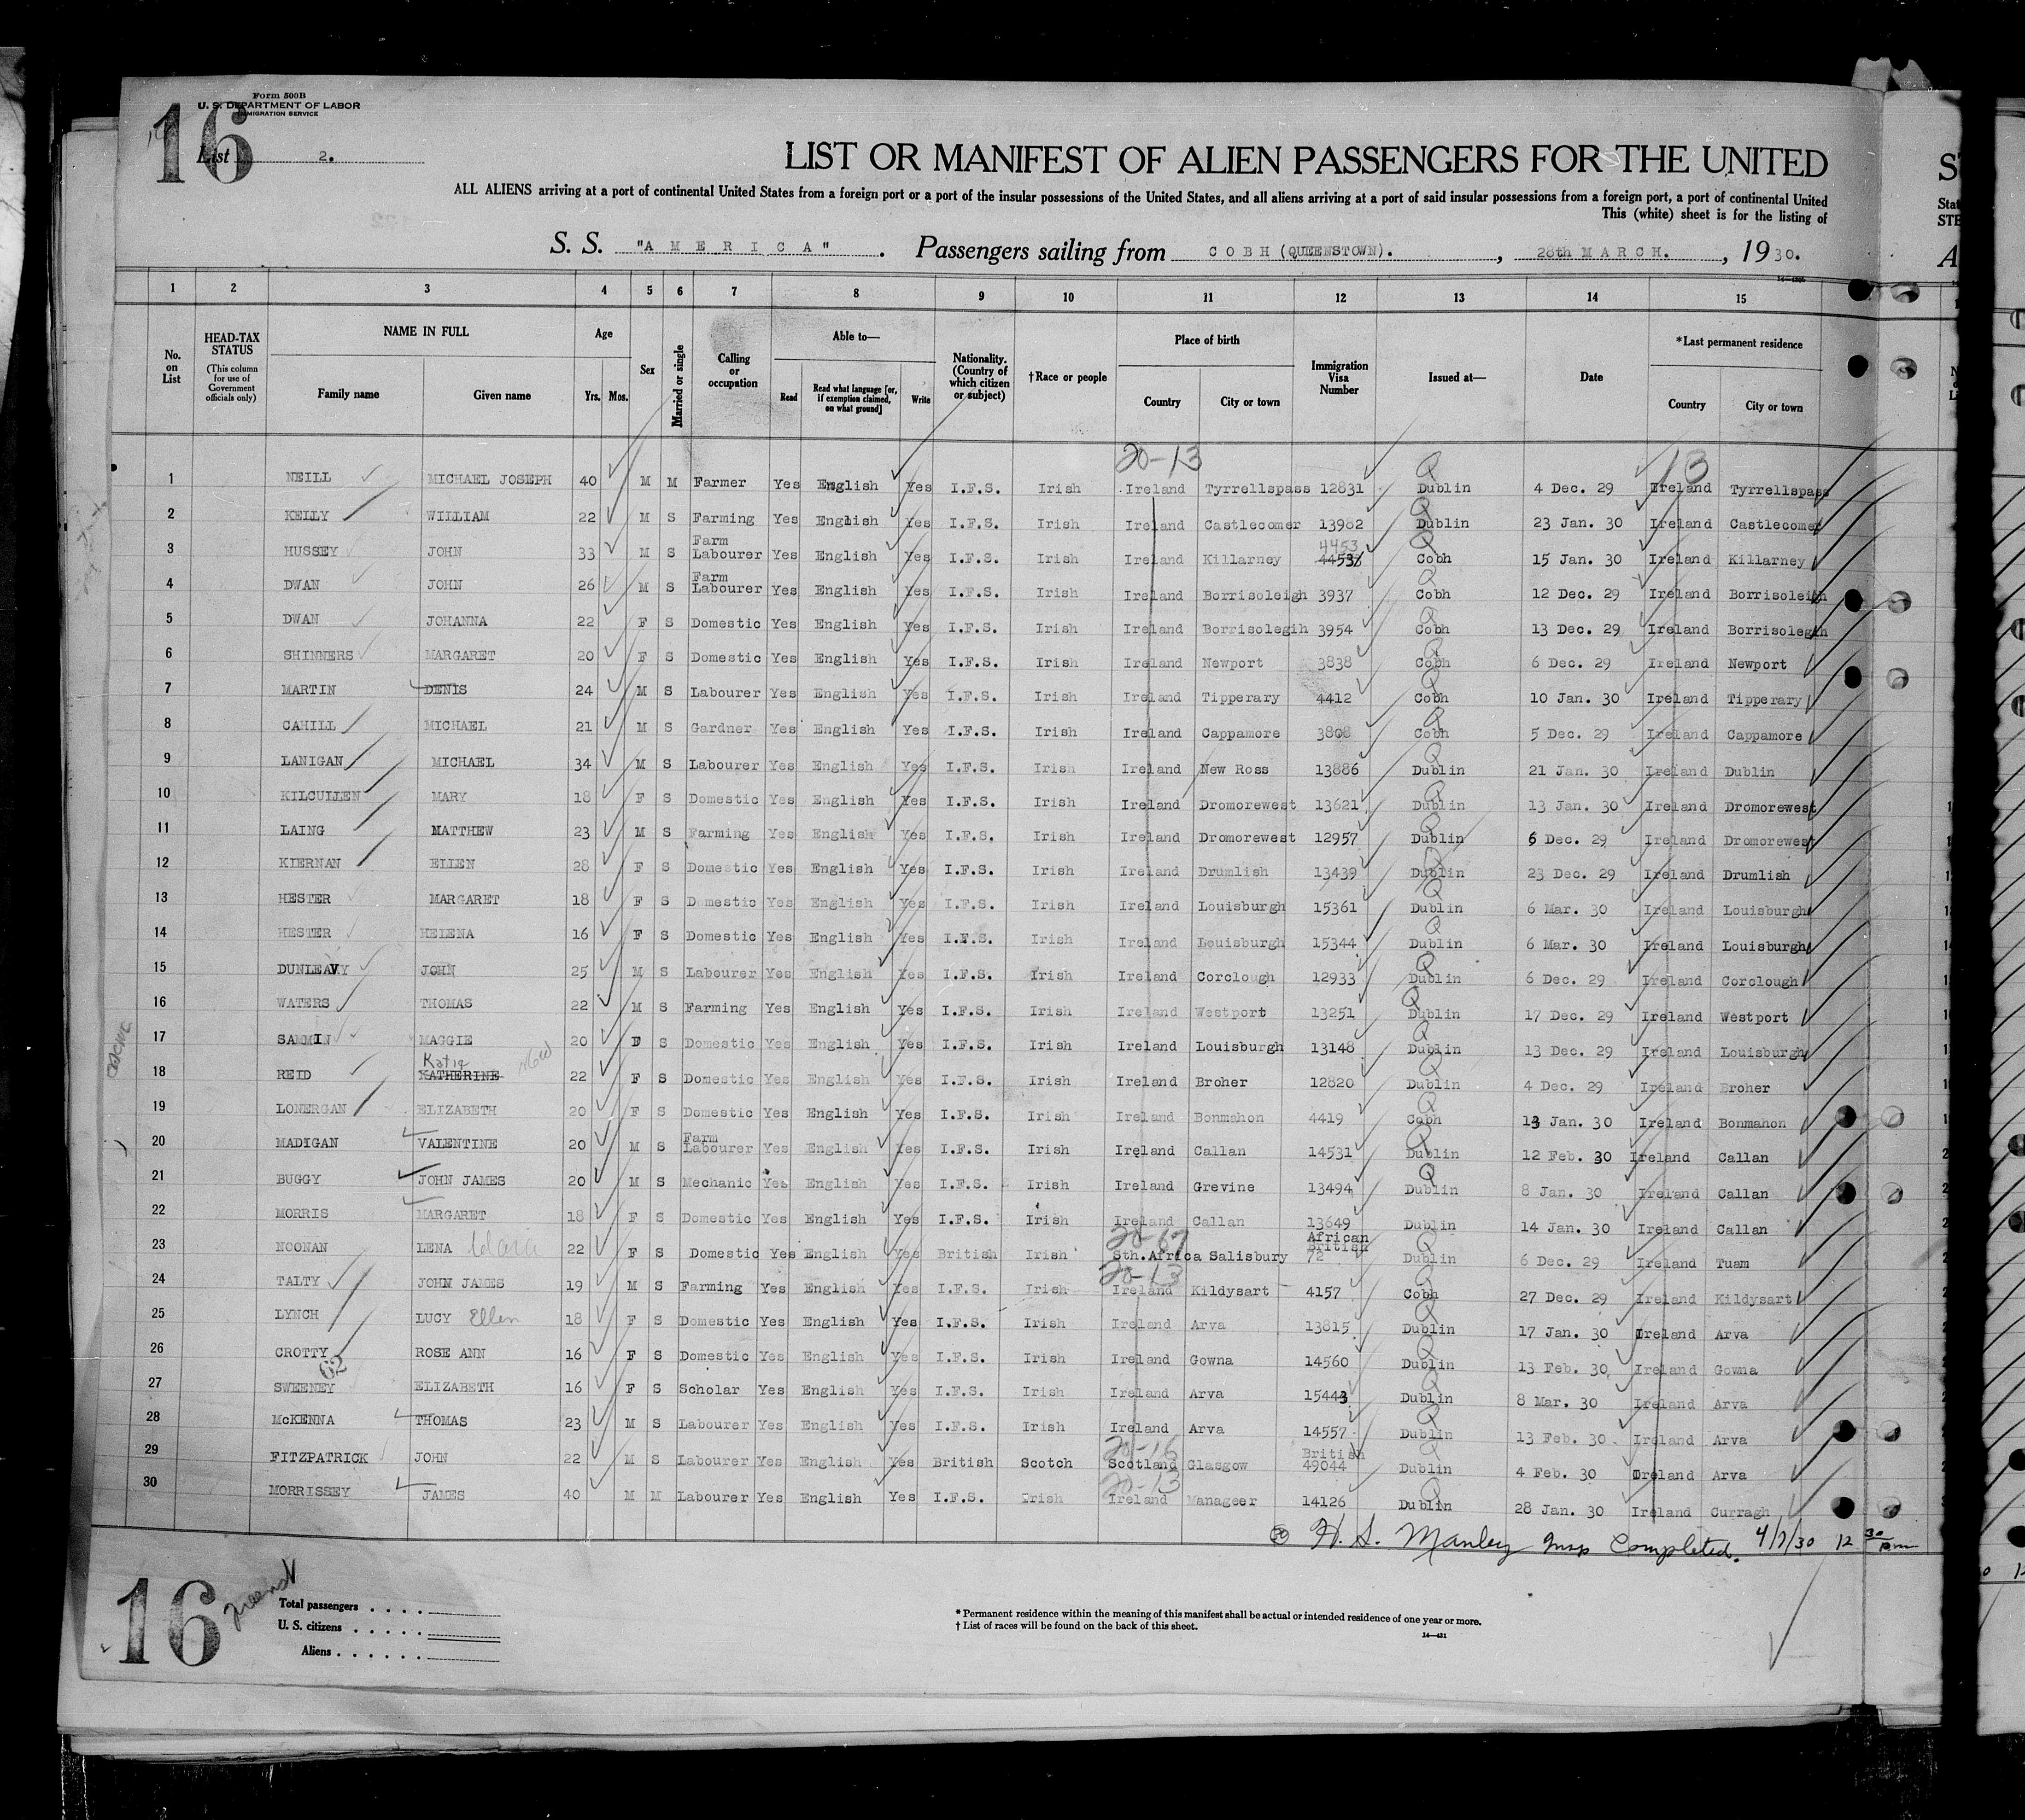 Form 500B
U. S. DEPARTMENT OF LABOR
IMMIGRATION SERVICE
16
List 2.
LIST OR MANIFEST OF ALIEN PASSENGERS FOR THE UNITED
ALL ALIENS arriving at a port of continental United States from a foreign port or a port of the insular possessions of the United States, and all aliens arriving at a port of said insular possessions from a foreign port, a port of continental United
This (white) sheet is for the listing of
S. S. "A M E R I C A". Passengers sailing from C O B H (QUEENSTOWN). , 28th M A R C H. , 1930.
1 2 3 4 5 6 7 8 9 10 11 12 13 14 15
No. on List
HEAD-TAX STATUS (This column for use of Government officials only)
NAME IN FULL
Family name Given name
Age
Yrs. Mos.
Sex
Married or single
Calling or occupation
Able to—
Read
Read what language [or, if exemption claimed, on what ground]
Write
Nationality. (Country of which citizen or subject)
†Race or people
Place of birth
Country City or town
Immigration Visa Number
Issued at—
Date
*Last permanent residence
Country City or town
20-13 13
1 NEILL MICHAEL JOSEPH 40 M M Farmer Yes English Yes I.F.S. Irish Ireland Tyrrellspass 12831 Dublin 4 Dec. 29 Ireland Tyrrellspass
2 KELLY WILLIAM 22 M S Farming Yes English Yes I.F.S. Irish Ireland Castlecomer 13982 Dublin 23 Jan. 30 Ireland Castlecomer
4453
3 HUSSEY JOHN 33 M S Farm Labourer Yes English Yes I.F.S. Irish Ireland Killarney Cobh 15 Jan. 30 Ireland Killarney
4 DWAN JOHN 26 M S Farm Labourer Yes English Yes I.F.S. Irish Ireland Borrisoleigh 3937 Cobh 12 Dec. 29 Ireland Borrisoleigh
5 DWAN JOHANNA 22 F S Domestic Yes English Yes I.F.S. Irish Ireland Borrisolegih 3954 Cobh 13 Dec. 29 Ireland Borrisolegih
6 SHINNERS MARGARET 20 F S Domestic Yes English Yes I.F.S. Irish Ireland Newport 3838 Cobh 6 Dec. 29 Ireland Newport
7 MARTIN DENIS 24 M S Labourer Yes English Yes I.F.S. Irish Ireland Tipperary 4412 Cobh 10 Jan. 30 Ireland Tipperary
8 CAHILL MICHAEL 21 M S Gardner Yes English Yes I.F.S. Irish Ireland Cappamore 3808 Cobh 5 Dec. 29 Ireland Cappamore
9 LANIGAN MICHAEL 34 M S Labourer Yes English Yes I.F.S. Irish Ireland New Ross 13886 Dublin 21 Jan. 30 Ireland Dublin
10 KILCULLEN MARY 18 F S Domestic Yes English Yes I.F.S. Irish Ireland Dromorewest 13621 Dublin 13 Jan. 30 Ireland Dromorewest
11 LAING MATTHEW 23 M S Farming Yes English Yes I.F.S. Irish Ireland Dromorewest 12957 Dublin 6 Dec. 29 Ireland Dromorewest
12 KIERNAN ELLEN 28 F S Domestic Yes English Yes I.F.S. Irish Ireland Drumlish 13439 Dublin 23 Dec. 29 Ireland Drumlish
13 HESTER MARGARET 18 F S Domestic Yes English Yes I.F.S. Irish Ireland Louisburgh 15361 Dublin 6 Mar. 30 Ireland Louisburgh
14 HESTER HELENA 16 F S Domestic Yes English Yes I.F.S. Irish Ireland Louisburgh 15344 Dublin 6 Mar. 30 Ireland Louisburgh
15 DUNLEAVY JOHN 25 M S Labourer Yes English Yes I.F.S. Irish Ireland Corclough 12933 Dublin 6 Dec. 29 Ireland Corclough
16 WATERS THOMAS 22 M S Farming Yes English Yes I.F.S. Irish Ireland Westport 13251 Dublin 17 Dec. 29 Ireland Westport
17 SAMMIN MAGGIE 20 F S Domestic Yes English Yes I.F.S. Irish Ireland Louisburgh 13148 Dublin 13 Dec. 29 Ireland Louisburgh
Katie
18 REID KATHERINE 22 F S Domestic Yes English Yes I.F.S. Irish Ireland Broher 12820 Dublin 4 Dec. 29 Ireland Broher
19 LONERGAN ELIZABETH 20 F S Domestic Yes English Yes I.F.S. Irish Ireland Bonmahon 4419 Cobh 13 Jan. 30 Ireland Bonmahon
20 MADIGAN VALENTINE 20 M S Farm Labourer Yes English Yes I.F.S. Irish Ireland Callan 14531 Dublin 12 Feb. 30 Ireland Callan
21 BUGGY JOHN JAMES 20 M S Mechanic Yes English Yes I.F.S. Irish Ireland Grevine 13494 Dublin 8 Jan. 30 Ireland Callan
22 MORRIS MARGARET 18 F S Domestic Yes English Yes I.F.S. Irish Ireland Callan 13649 Dublin 14 Jan. 30 Ireland Callan
20-67 African British
23 NOONAN LENA 22 F S Domestic Yes English Yes British Irish Sth.Africa Salisbury 72 Dublin 6 Dec. 29 Ireland Tuam
20-13
24 TALTY JOHN JAMES 19 M S Farming Yes English Yes I.F.S. Irish Ireland Kildysart 4157 Cobh 27 Dec. 29 Ireland Kildysart
25 LYNCH LUCY Ellen 18 F S Domestic Yes English Yes I.F.S. Irish Ireland Arva 13815 Dublin 17 Jan. 30 Ireland Arva
26 CROTTY ROSE ANN 16 F S Domestic Yes English Yes I.F.S. Irish Ireland Gowna 14560 Dublin 13 Feb. 30 Ireland Gowna
62
27 SWEENEY ELIZABETH 16 F S Scholar Yes English Yes I.F.S. Irish Ireland Arva 15443 Dublin 8 Mar. 30 Ireland Arva
28 McKENNA THOMAS 23 M S Labourer Yes English Yes I.F.S. Irish Ireland Arva 14557 Dublin 13 Feb. 30 Ireland Arva
20-16 British
29 FITZPATRICK JOHN 22 M S Labourer Yes English Yes British Scotch Scotland Glasgow 49044 Dublin 4 Feb. 30 Ireland Arva
20-13
30 MORRISSEY JAMES 40 M M Labourer Yes English Yes I.F.S. Irish Ireland Manageer 14126 Dublin 28 Jan. 30 Ireland Curragh
30 H. S. Manley Insp Completed. 4/7/30 12 30 pm
16
Total passengers . . . .
U. S. citizens . . . . .
Aliens . . . . . .
* Permanent residence within the meaning of this manifest shall be actual or intended residence of one year or more.
† List of races will be found on the back of this sheet.
14—421